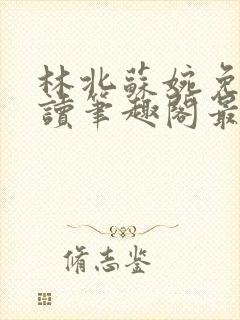 林北蘇婉免
讀筆趣閣最
脩志鉴